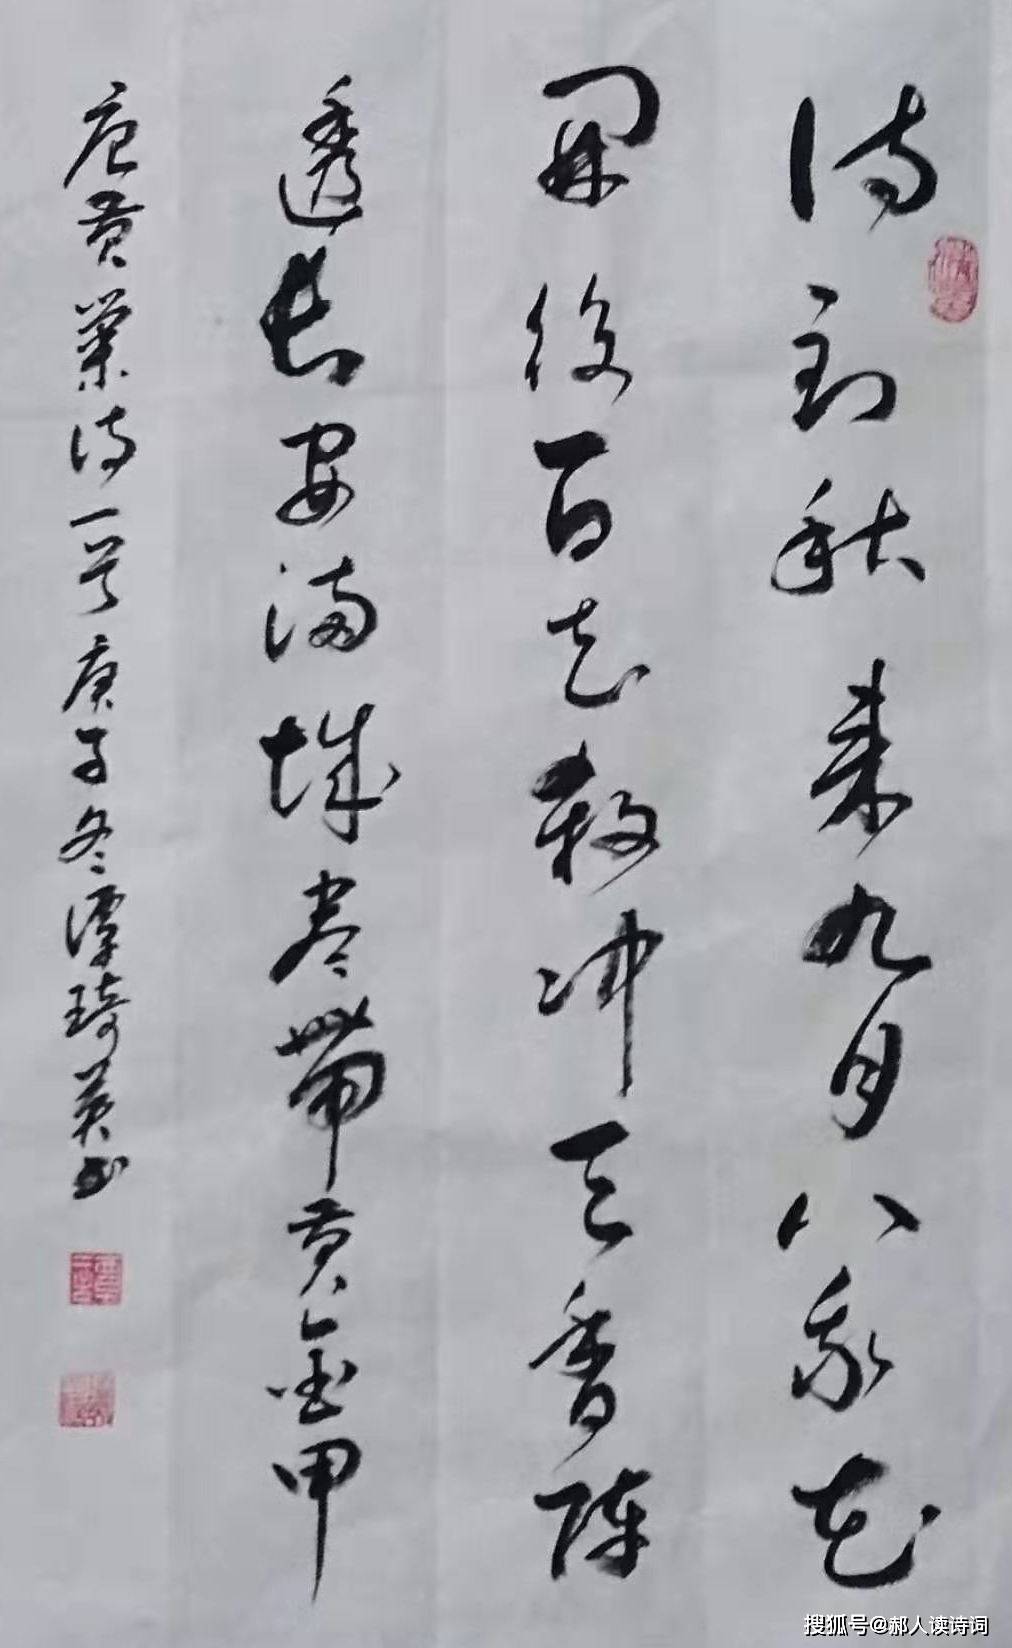 待到秋来九月八我花
開後百花殺冲天香陣
透长安满城尽帶黄金甲
唐黄巢诗一首庚子冬谭琦英书
搜狐号@郝人读诗词